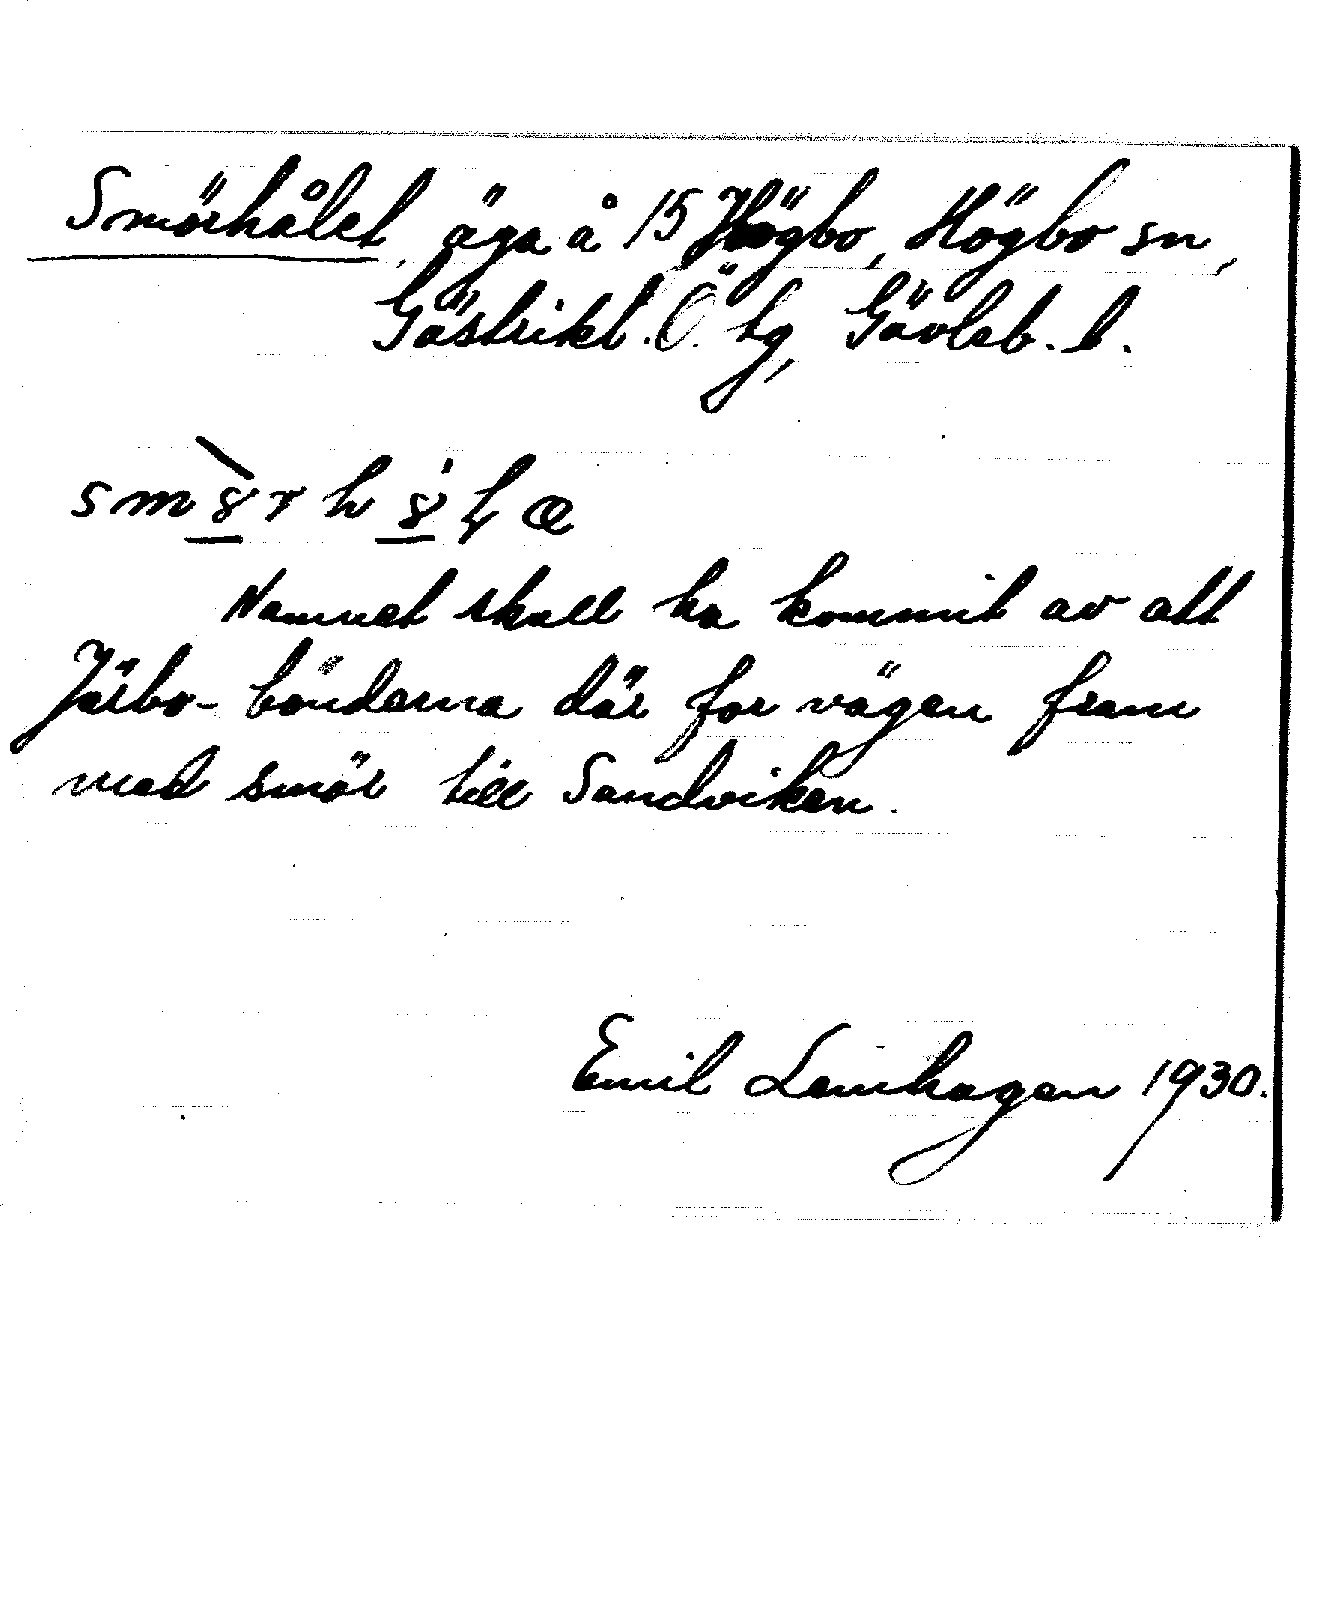 Smörhålet, äga å 15 Högbo, Högbo sn,
Gästrikl. Ö. tg, Gävleb. l.
Namnet skall ha kommit av att
Järbo-bönderna där for vägen fram
med smör till Sandviken.
Emil Leinhagen 1930.